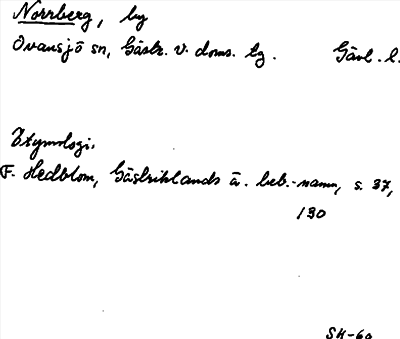 Norrberg, by
Ovansjö sn, Gästr. v. doms. tg. Gävl. l.
Etymologi.
F. Hedblom, Gästriklands ä. beb.-namn, s. 37,
130
SH-60